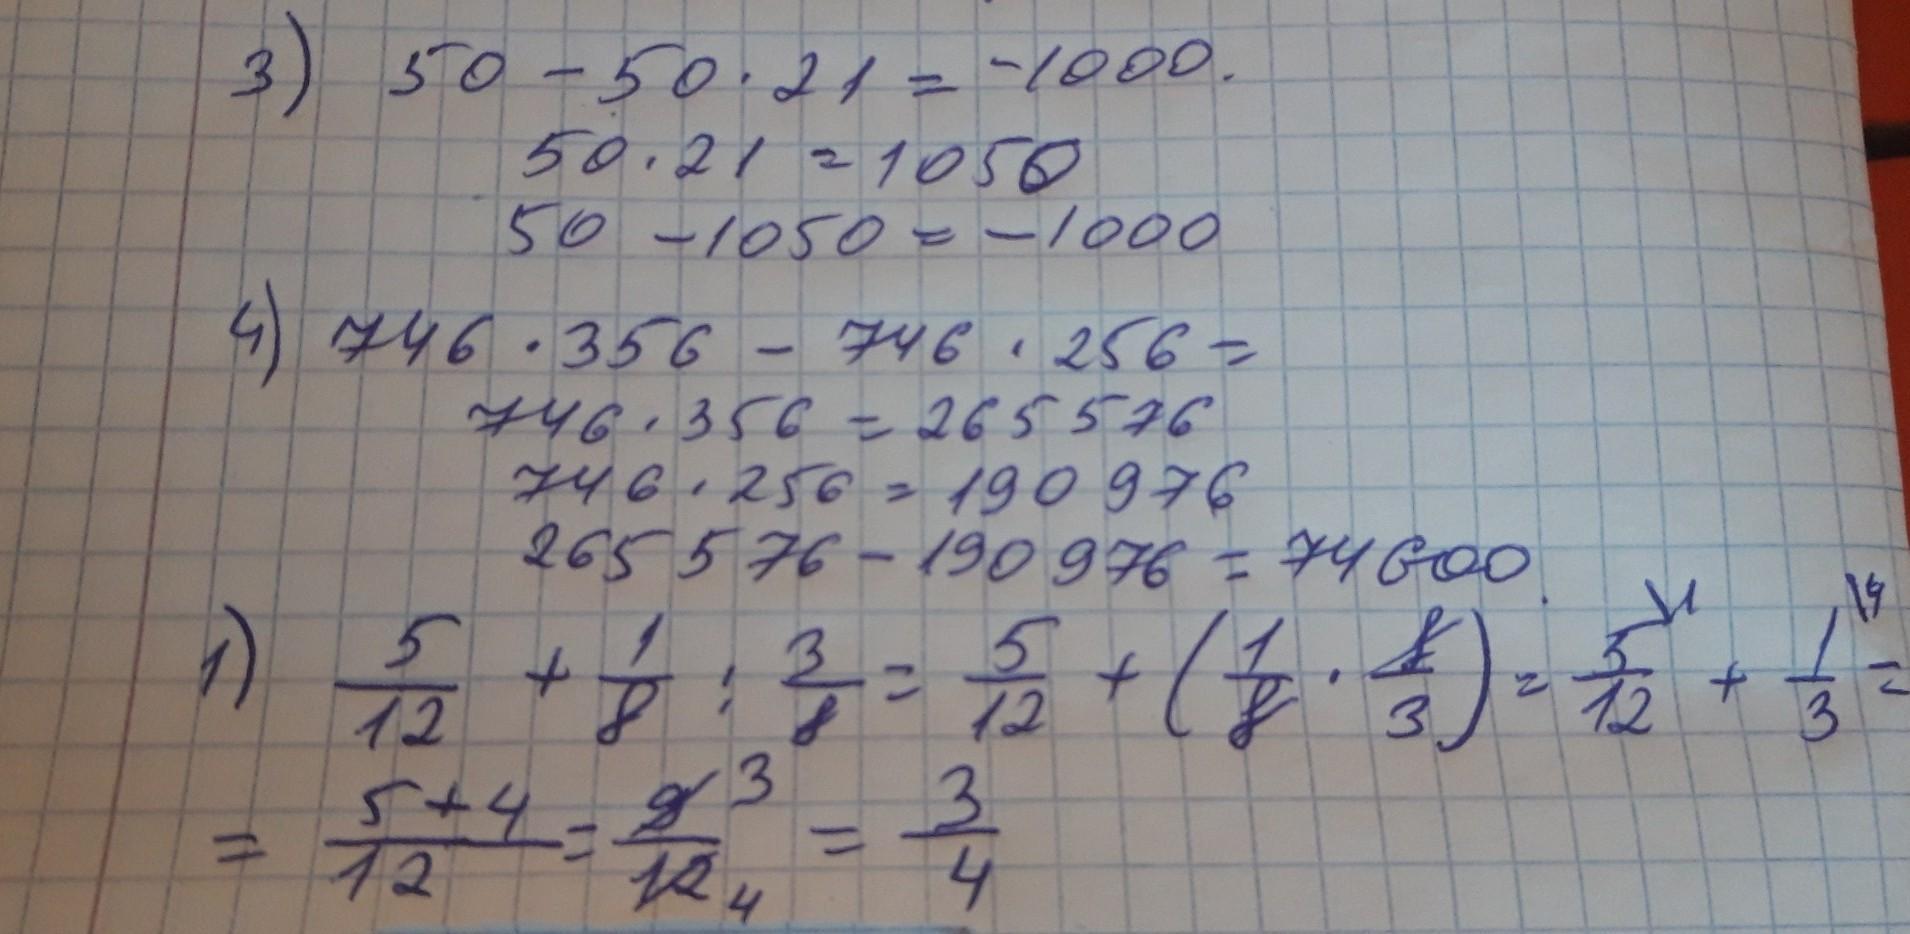 3) 50 - 50 · 21 = -1000.
50 · 21 = 1050
50 - 1050 = -1000
4) 746 · 356 - 746 · 256 =
746 · 356 = 265 576
746 · 256 = 190 976
265 576 - 190 976 = 74600
1) 5/12 + 1/8 : 3/8 = 5/12 + (1/8 · 8/3) = 5/12 \1 + 1/3 \4 =
= (5+4)/12 = 9/12 3 4 = 3/4